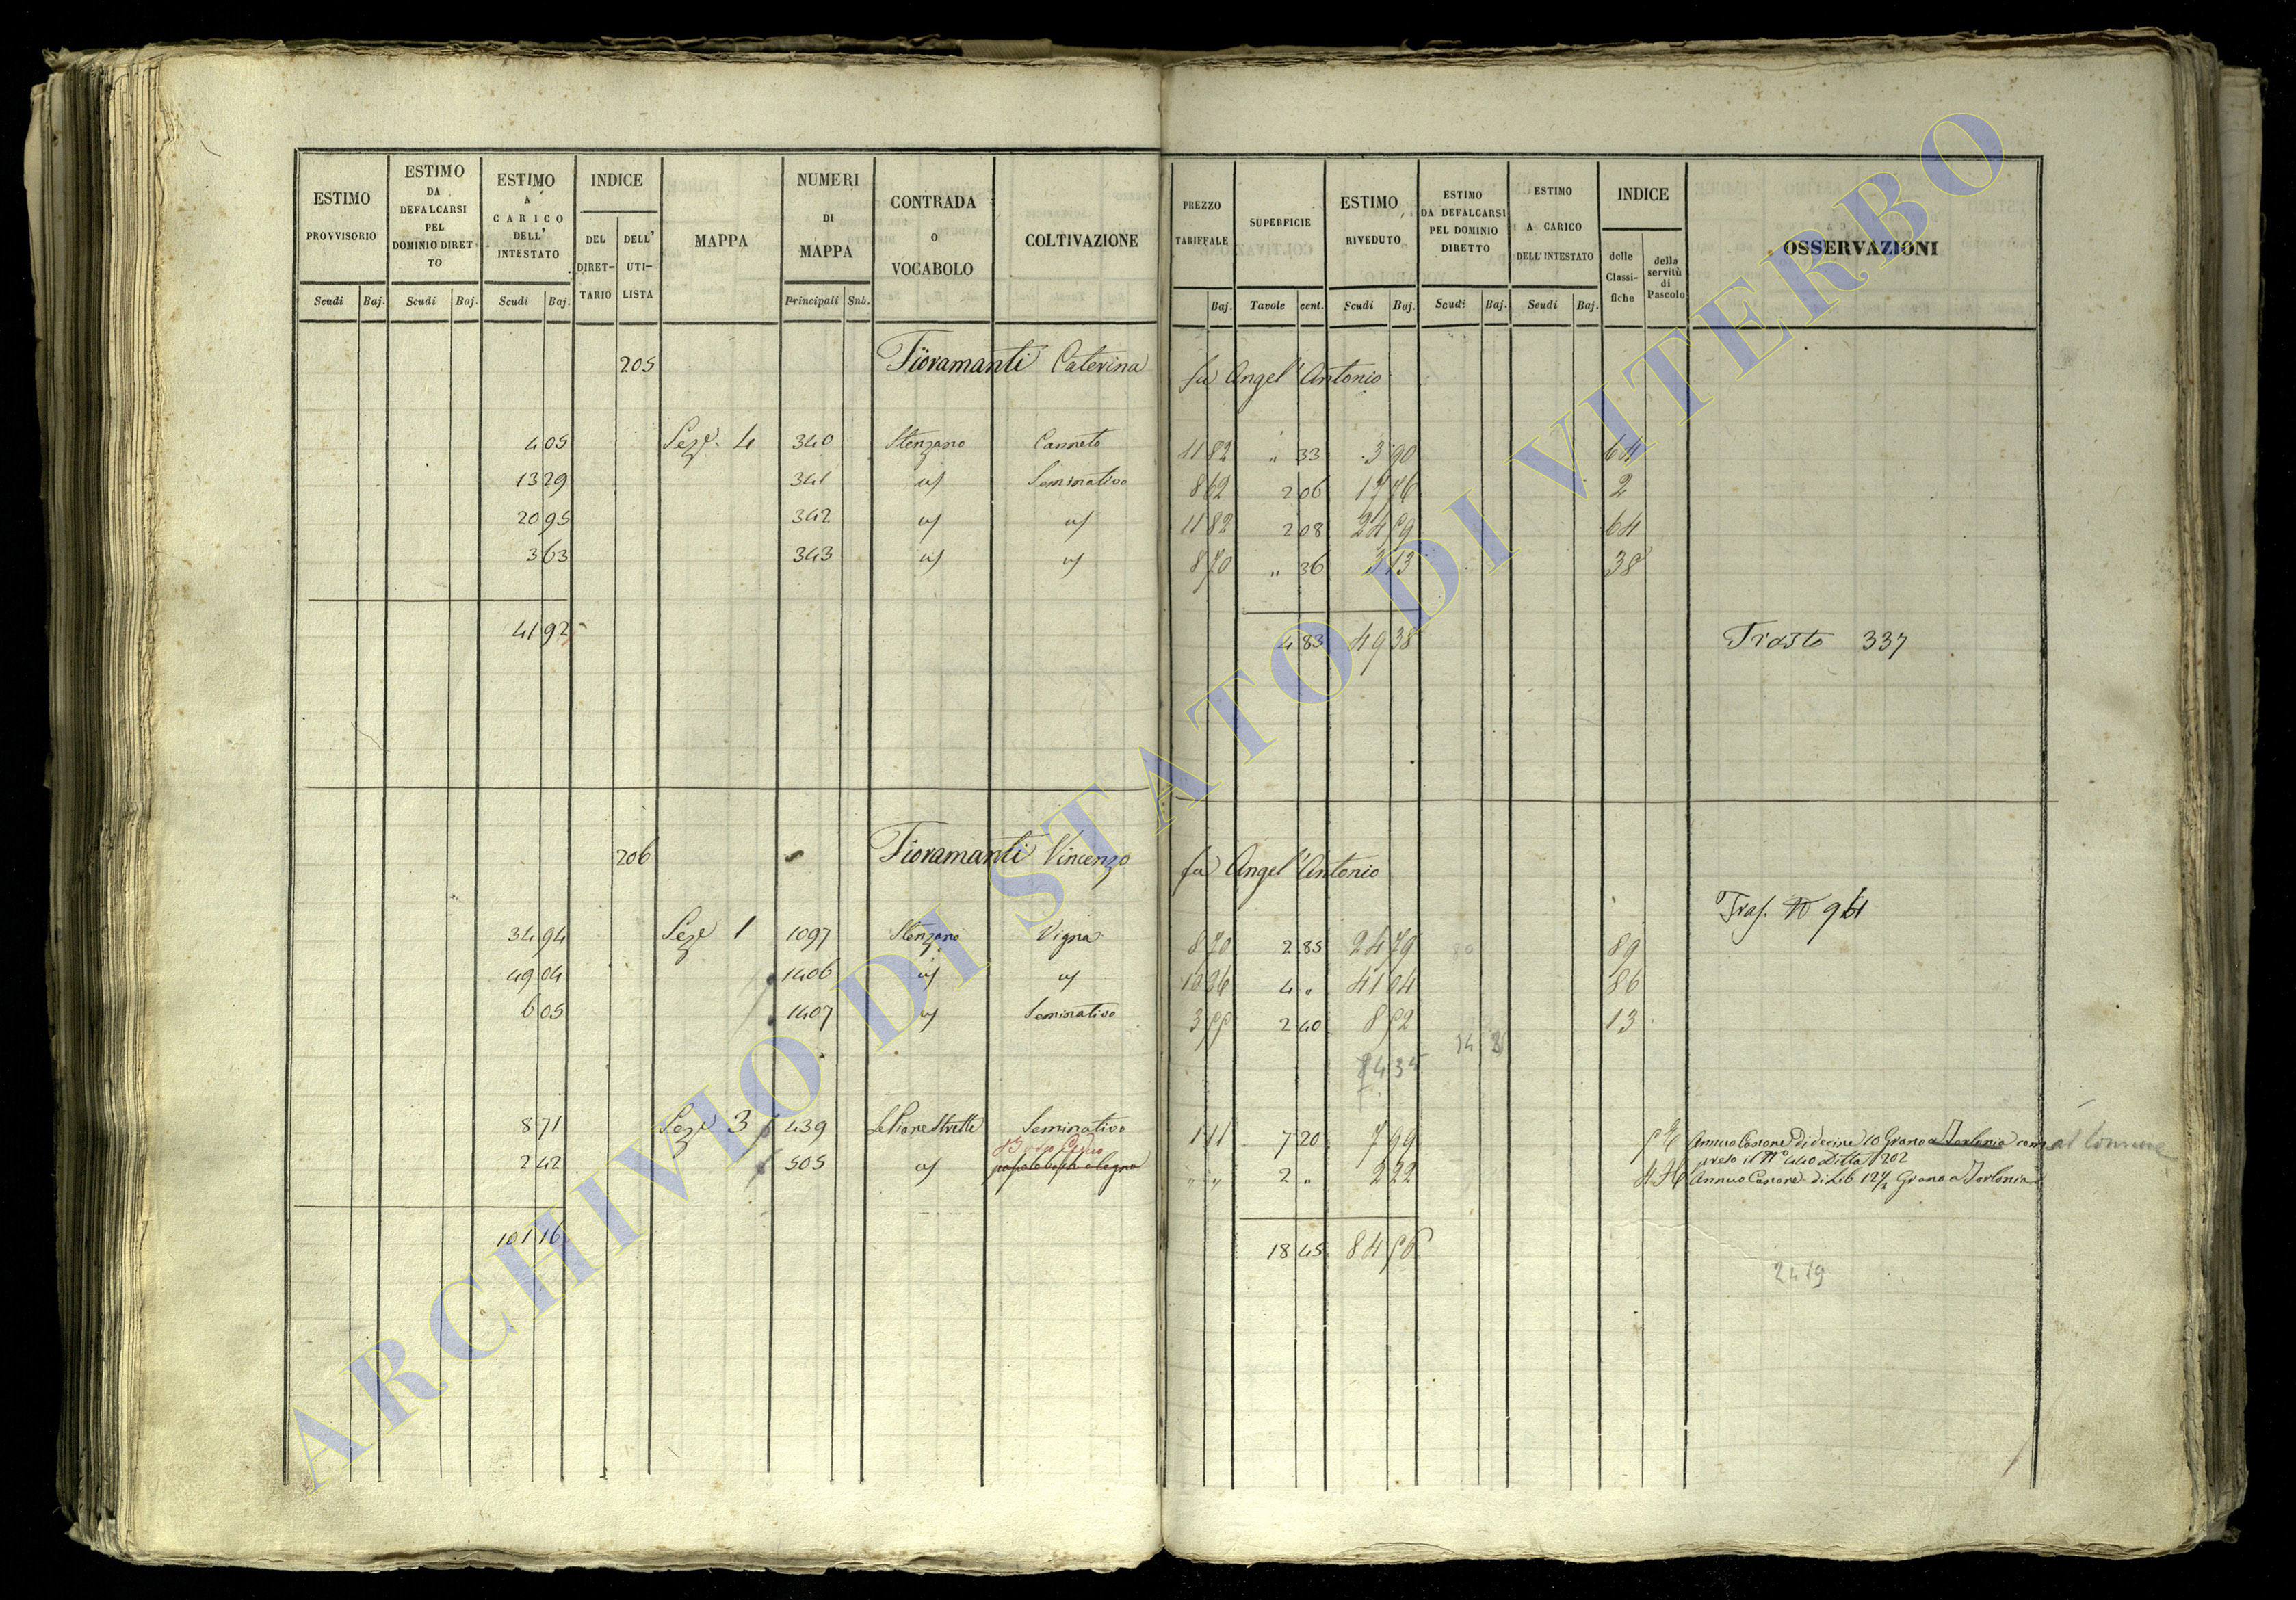 ESTIMO PROVVISORIO Scudi Baj.
ESTIMO DA DEFALCARSI PEL DOMINIO DIRETTO Scudi Baj.
ESTIMO A CARICO DELL' INTESTATO Scudi Baj.
INDICE DEL DIRET-TARIO DELL' UTI-LISTA
MAPPA
NUMERI DI MAPPA Principali Snb.
CONTRADA O VOCABOLO
COLTIVAZIONE
PREZZO TARIFFALE Baj.
SUPERFICIE Tavole cent.
ESTIMO RIVEDUTO Scudi Baj.
ESTIMO DA DEFALCARSI PEL DOMINIO DIRETTO Scudi Baj.
ESTIMO A CARICO DELL' INTESTATO Scudi Baj.
INDICE delle Classi-fiche della servitù di Pascolo
OSSERVAZIONI
205 Fioramanti Caterina fu Angel'Antonio
4 05 Sez.e 4 340 Stenzano Canneto 11 82 " 33 3 90 64
13 29 341 " Seminativo 8 62 2 06 17 76 2
20 95 342 " " 11 82 2 08 24 59 64
3 63 343 " " 8 70 " 36 3 13 38
41 92 4 83 49 38 Trasto 337
206 Fioramanti Vincenzo fu Angel'Antonio
Trasf.
34 94 Sez.e 1 1097 Stenzano Vigna 8 70 2 85 24 79 89
49 04 1406 " " 10 26 4 " 41 04 86
6 05 1407 " Seminativo 3 55 2 40 8 52 13
84 35
8 71 Sez.e 3 439 Le Piane Strette Seminativo 1 11 7 20 7 99 Annuo Canone di decine 10 Grano a Torlonia com al Comune
preso il N.o 440 Ditta 1202
2 42 505 " " " 2 " 2 22 Annuo Canone di Lib 12 1/2 Grano a Torlonia
101 16 18 45 84 56
2479
ARCHIVIO DI STATO DI VITERBO